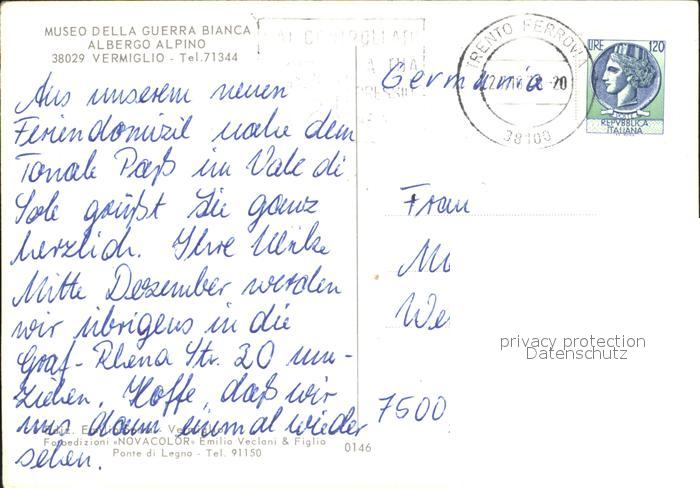 MUSEO DELLA GUERRA BIANCA
ALBERGO ALPINO
38029 VERMIGLIO - Tel.71344
Aus unserem neuen
Feriendomizil nahe dem
Tonale Paß im Vale di
Sole grüßt Sie ganz
herzlich. Ihre Ulrike
Mitte Dezember werden
wir übrigens in die
Graf-Rhena Str. 20 um-
ziehen. Hoffe, daß wir
uns dann einmal wieder
sehen.
Fotoedizioni «NOVACOLOR» Emilio Veclani & Figlio
Ponte di Legno - Tel. 91150
0146
TRENTO FERROVIA
20
38100
LIRE 120
REPVBBLICA
ITALIANA
Germania
Frau
7500
privacy protection
Datenschutz